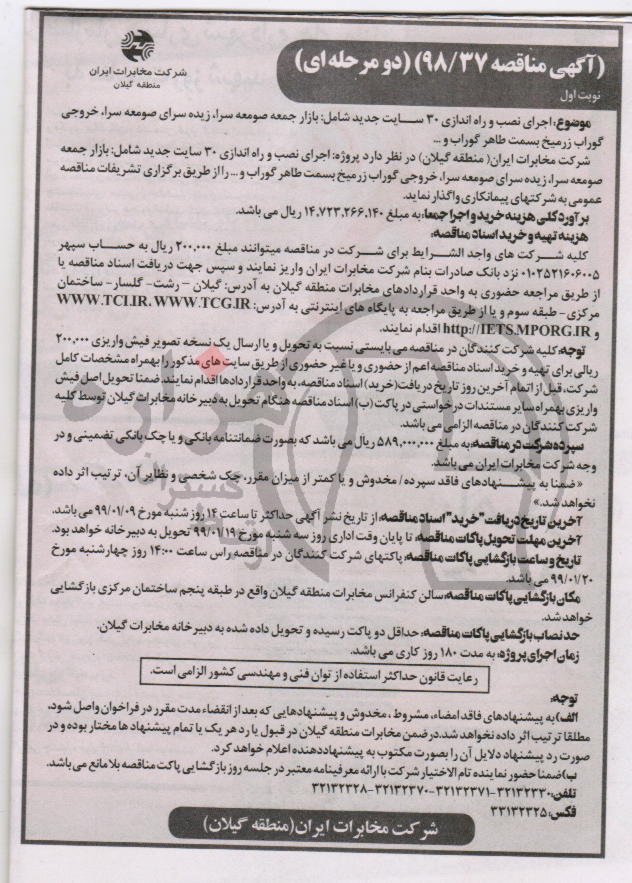 شرکت مخابرات ایران
منطقه گیلان
(آگهی مناقصه ۹۸/۳۷) (دو مرحله ای)
نوبت اول
موضوع: اجرای نصب و راه اندازی ۳۰ سـایت جدید شامل: بازار جمعه صومعه سرا، زیده سرای صومعه سرا، خروجی
گوراب زرمیخ بسمت طاهر گوراب و...
شرکت مخابرات ایران( منطقه گیلان) در نظر دارد پروژه: اجرای نصب و راه اندازی ۳۰ سایت جدید شامل: بازار جمعه
صومعه سرا، زیده سرای صومعه سرا، خروجی گوراب زرمیخ بسمت طاهر گوراب و ... را از طریق برگزاری تشریفات مناقصه
عمومی به شرکتهای پیمانکاری واگذار نماید.
برآورد کلی هزینه خرید و اجرا جمعا: به مبلغ ۱۴,۷۲۳,۲۶۶,۱۴۰ ریال می باشد.
هزینه تهیه و خرید اسناد مناقصه:
کلیه شـرکت های واجد الشـرایط برای شـرکت در مناقصه میتوانند مبلغ ۲۰۰,۰۰۰ ریال به حسـاب سپهر
۰۱۰۲۵۲۱۶۰۶۰۰۵ نزد بانک صادرات بنام شرکت مخابرات ایران واریز نمایند و سپس جهت دریافت اسناد مناقصه یا
از طریق مراجعه حضوری به واحد قراردادهای مخابرات منطقه گیلان به آدرس: گیلان – رشت- گلسار- ساختمان
مرکزی – طبقه سوم و یا از طریق مراجعه به پایگاه های اینترنتی به آدرس: WWW.TCI.IR، WWW.TCG.IR
و http://IETS.MPORG.IR اقدام نمایند.
توجه: کلیه شرکت کنندگان در مناقصه می بایستی نسبت به تحویل و یا ارسال یک نسخه تصویر فیش واریزی ۲۰۰,۰۰۰
ریالی برای تهیه و خرید اسناد مناقصه اعم از حضوری و یا غیر حضوری از طریق سایت های مذکور را بهمراه مشخصات کامل
شرکت، قبل از اتمام آخرین روز تاریخ دریافت(خرید) اسناد مناقصه، به واحد قراردادها اقدام نمایند. ضمنا تحویل اصل فیش
واریزی بهمراه سایر مستندات درخواستی در پاکت (ب) اسناد مناقصه هنگام تحویل به دبیرخانه مخابرات گیلان توسط کلیه
شرکت کنندگان در مناقصه الزامی می باشد.
سپرده شرکت در مناقصه: به مبلغ ۵۸۹,۰۰۰,۰۰۰ ریال می باشد که بصورت ضمانتنامه بانکی و یا چک بانکی تضمینی و در
وجه شرکت مخابرات ایران می باشد.
«ضمنا به پیشـنهادهای فاقد سپرده/ مخدوش و یا کمتر از میزان مقرر، چک شخصی و نظایر آن، ترتیب اثر داده
نخواهد شد.»
آخرین تاریخ دریافت "خرید" اسناد مناقصه: از تاریخ نشر آگهی حداکثر تا ساعت ۱۴ روز شنبه مورخ ۹۹/۰۱/۰۹ می باشد.
آخرین مهلت تحویل پاکات مناقصه: تا پایان وقت اداری روز سه شنبه مورخ ۹۹/۰۱/۱۹ تحویل به دبیرخانه خواهد بود.
تاریخ و ساعت بازگشایی پاکات مناقصه: پاکتهای شرکت کنندگان در مناقصه راس ساعت ۱۴:۰۰ روز چهارشنبه مورخ
۹۹/۰۱/۲۰ می باشد.
مکان بازگشایی پاکات مناقصه: سالن کنفرانس مخابرات منطقه گیلان واقع در طبقه پنجم ساختمان مرکزی بازگشایی
خواهد شد.
حد نصاب بازگشایی پاکات مناقصه: حداقل دو پاکت رسیده و تحویل داده شده به دبیرخانه مخابرات گیلان.
زمان اجرای پروژه: به مدت ۱۸۰ روز کاری می باشد.
رعایت قانون حداکثر استفاده از توان فنی و مهندسی کشور الزامی است.
توجه:
الف) به پیشنهادهای فاقد امضاء، مشروط ، مخدوش و پیشنهادهایی که بعد از انقضاء مدت مقرر در فراخوان واصل شود،
مطلقا ترتیب اثر داده نخواهد شد. در ضمن مخابرات منطقه گیلان در قبول یا رد هر یک یا تمام پیشنهاد ها مختار بوده و در
صورت رد پیشنهاد دلایل آن را بصورت مکتوب به پیشنهاددهنده اعلام خواهد کرد.
ب) ضمنا حضور نماینده تام الاختیار شرکت با ارائه معرفینامه معتبر در جلسه روز بازگشایی پاکت مناقصه بلامانع می باشد.
تلفن: ۳۲۱۳۲۳۳۰-۳۲۱۳۲۳۷۱-۳۲۱۳۲۳۷۰-۳۲۱۳۲۳۲۸
فکس: ۳۳۱۳۲۳۲۵
شرکت مخابرات ایران(منطقه گیلان)